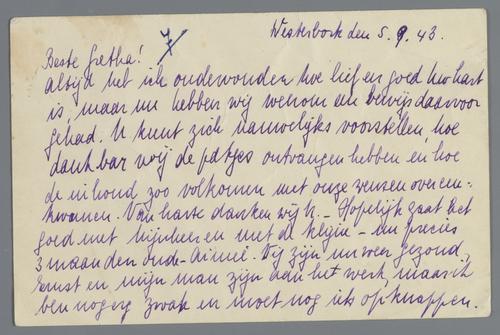 Westerbork den 5. 9. 43.
Beste Gretha!
altijd heb ik ondervonden hoe lief en goed Uw hart
is, maar nu hebben wij wederom een bewijs daarvoor
gehad. U kunt zich nauwelijks voorstellen, hoe
dankbar wij de patjes ontvangen hebben en hoe
de inhoud zoo volkomen met onze wensen overeen-
kwamen. Van harte danken wij U. - Hopelijk gaat het
goed met Mijnheer en met de kleine - nu precies
3 maanden oude - Aimée. Wij zijn nu weer gezond.
Ernst en mijn man zijn aan het werk, maar ik
ben nog erg zwak en moet nog iets opknappen.